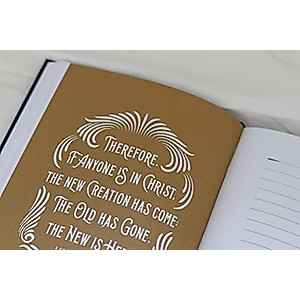 Therefore,
if Anyone is in Christ,
the new Creation has come:
The Old has Gone,
the New is Here